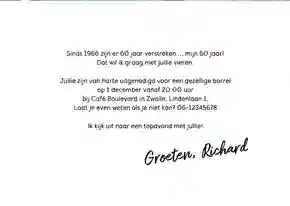 Sinds 1966 zijn er 60 jaar verstreken.... mijn 60 jaar!
Dat wil ik graag met jullie vieren.
Jullie zijn van harte uitgenodigd voor een gezellige borrel
op 1 december vanaf 20.00 uur
bij Café Boulevard in Zwolle, Lindenlaan 1.
Laat je even weten als je niet kan? 06-12345678
Ik kijk uit naar een topavond met jullie!
Groeten, Richard